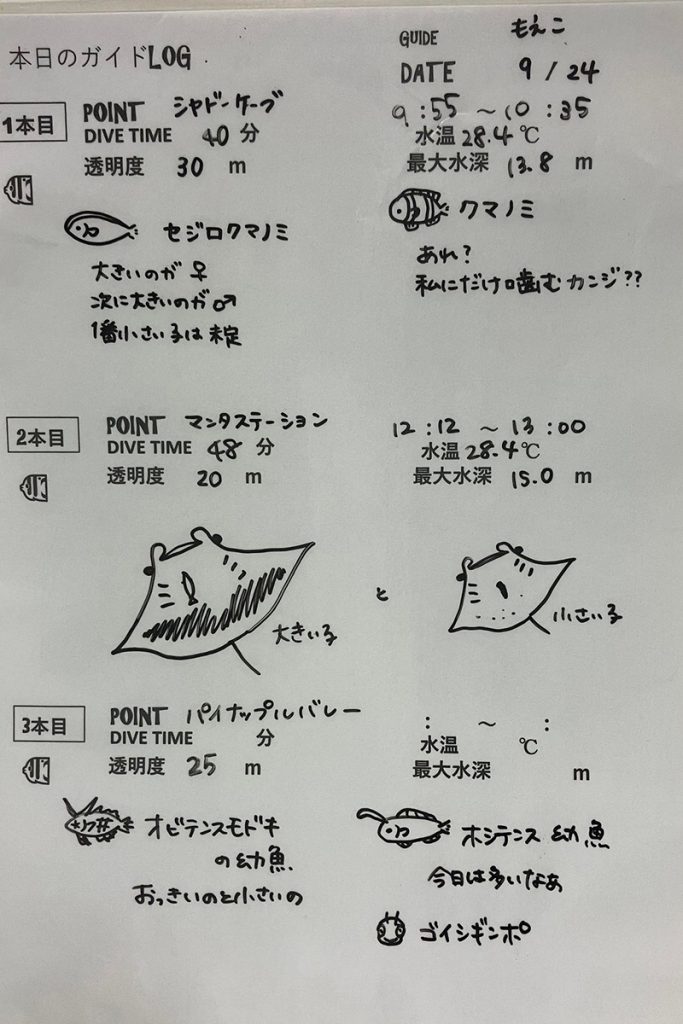 本日のガイドLOG
GUIDE もえこ
DATE 9 / 24
1本目
POINT シャドーケーブ
DIVE TIME 40 分
透明度 30 m
9:55 ～ 10:35
水温 28.4 ℃
最大水深 13.8 m
セジロクマノミ
大きいのが ♀
次に大きいのが♂
1番小さい子は未定
クマノミ
あれ?
私にだけ噛むカンジ??
2本目
POINT マンタステーション
DIVE TIME 48 分
透明度 20 m
12:12 ～ 13:00
水温 28.4℃
最大水深 15.0 m
大きい子
と
小さい子
3本目
POINT パイナップルバレー
DIVE TIME 分
透明度 25 m
: ～ :
水温 ℃
最大水深 m
オビテンスモドキ
の幼魚
おっきいのと小さいの
ホシテンス 幼魚
今日は多いなぁ
ゴイシギンポ